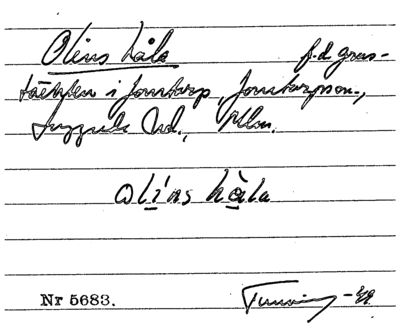 Olins håla f.d. grus-
täkten i Jonstorp, Jonstorpsn.,
Luggude hd.,
olíns hàla
Nr 5683.